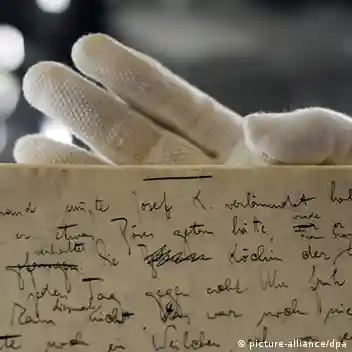 mand mußte Josef K. verläumdet hab
er etwas Böses getan hätte, wurde
verhaftet
gefangen. Die Köchin der
jeden Tag gegen acht Uhr früh
kam diesmal nicht. Das war noch nie
te noch ein Weilchen
(c) picture-alliance/dpa